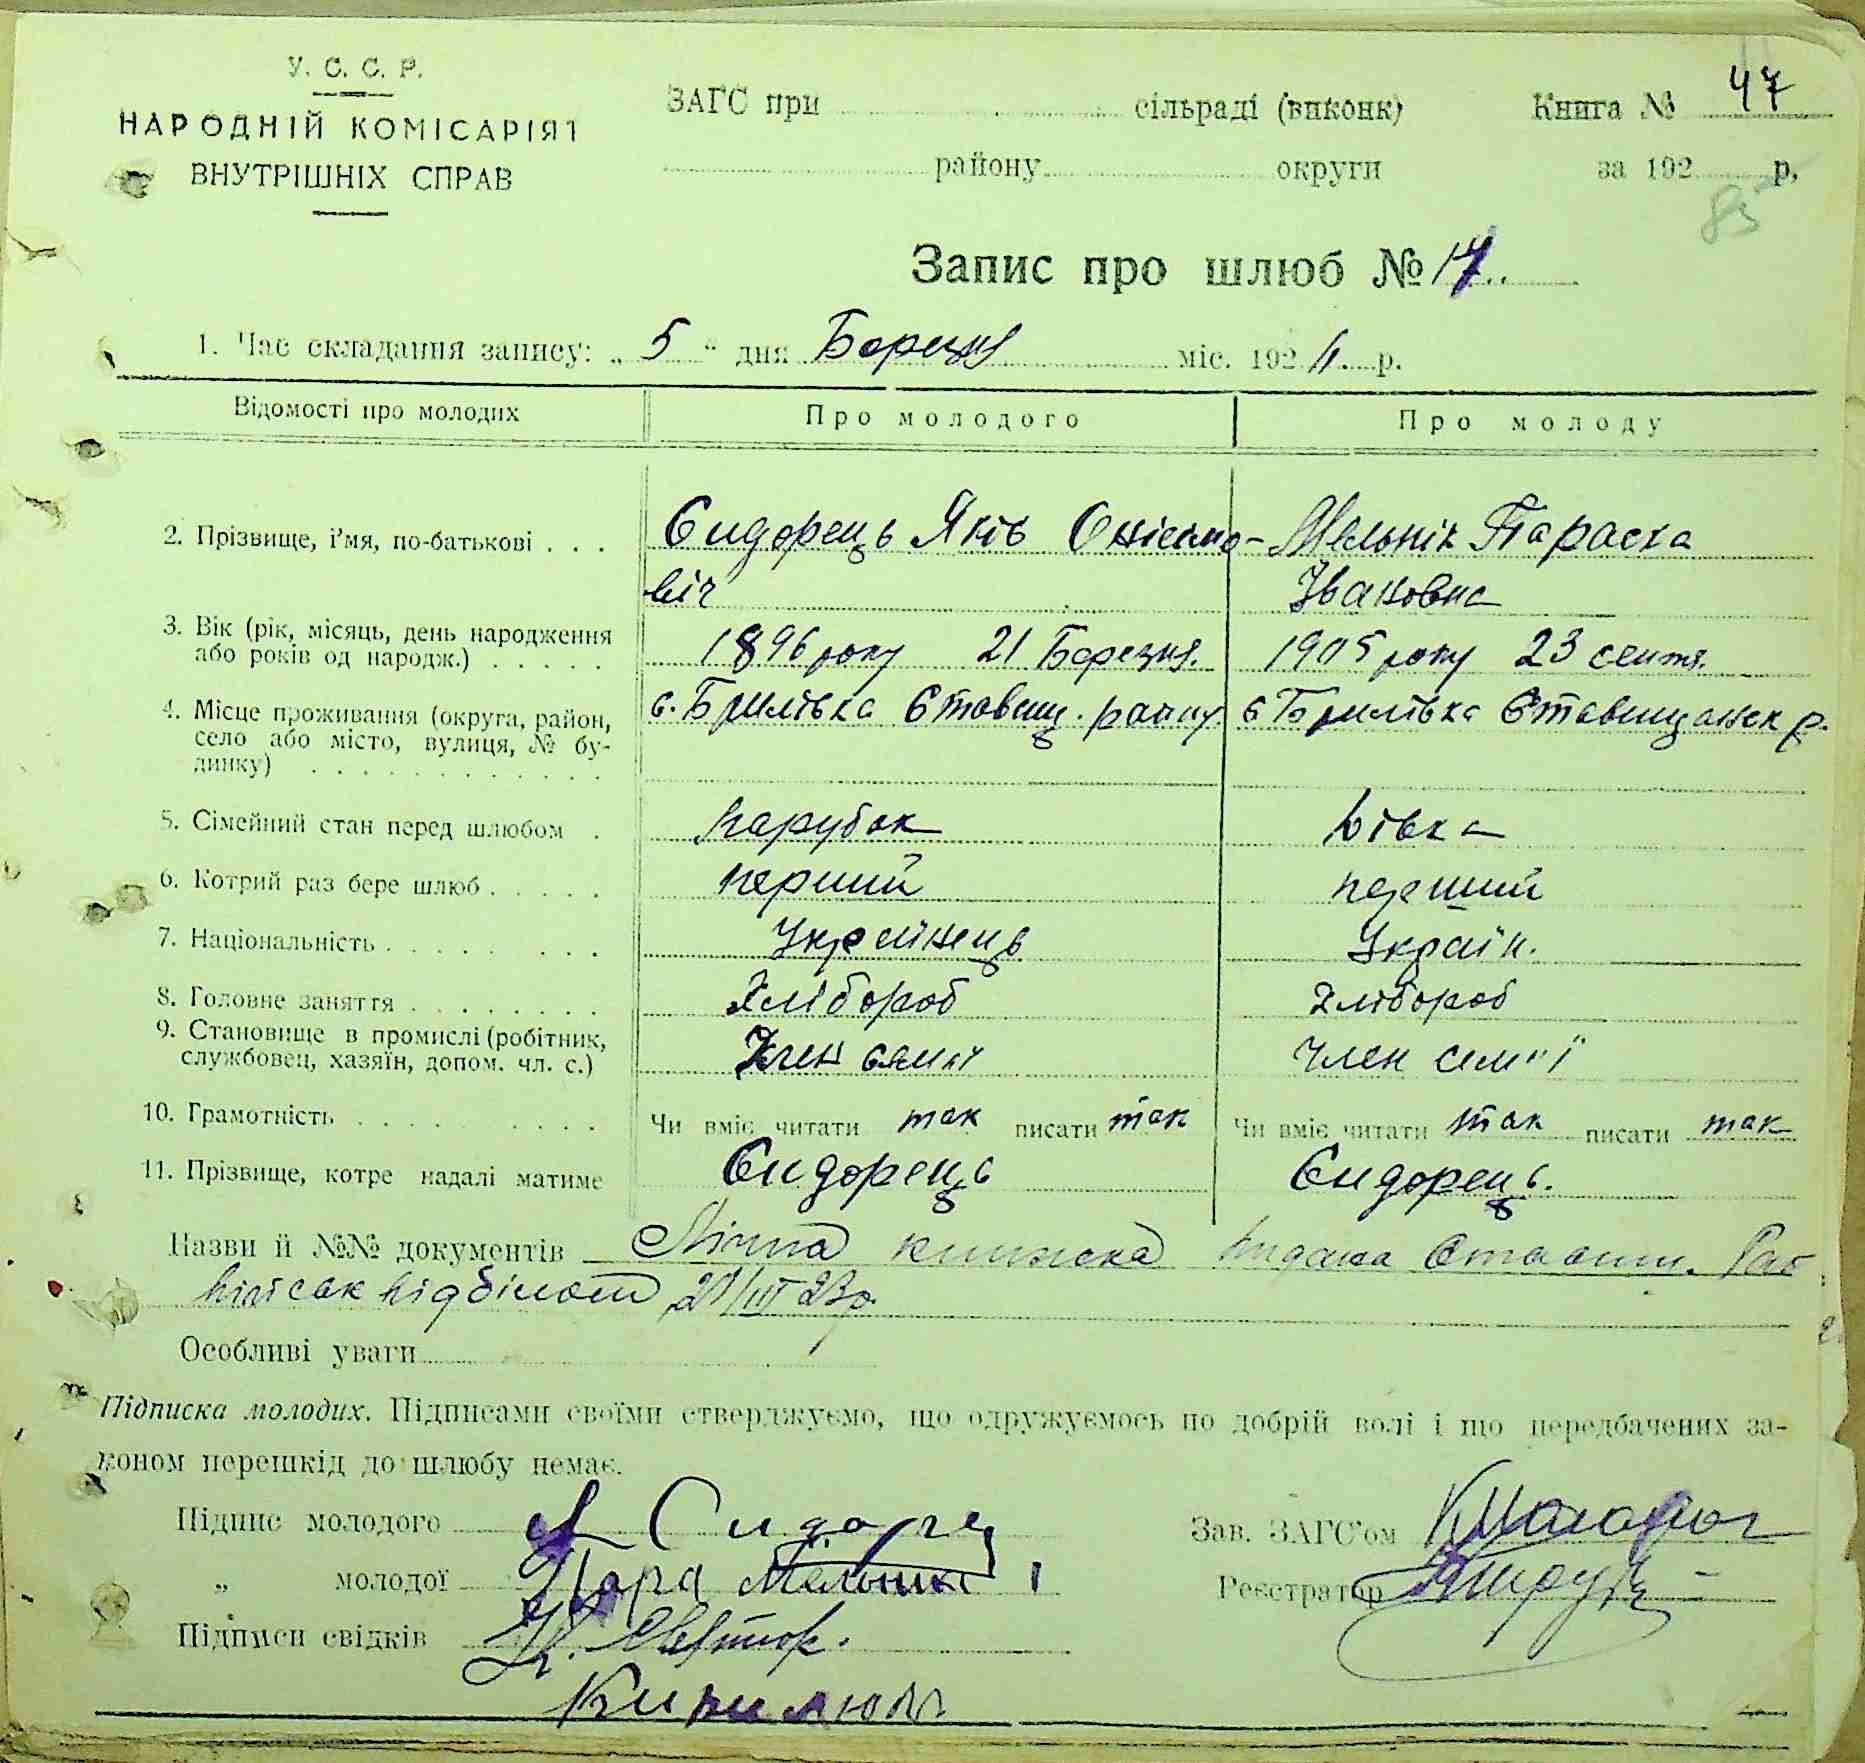 У. С. С. Р.
НАРОДНІЙ КОМІСАРІЯТ
ВНУТРІШНІХ СПРАВ
ЗАГС при сільраді (виконк)
району округи
Книга № 47
за 192 р,
85
Запис про шлюб № 17
1. Час складання запису: „ 5 “ дня Березня міс. 1924 р.
Відомості про молодих
Про молодого
Про молоду
2. Прізвище, і'мя, по-батькові . . .
Сидорець Яків Онісімо-
віч
Мельнік Параска
Івановна
3. Вік (рік, місяць, день народження
або років од народж.) . . . . .
1896 року 21 Березня.
1905 року 23 сентя.
4. Місце проживання (округа, район,
село або місто, вулиця, № бу-
динку) . . . . . . . . . . . .
с. Брилівка Ставищ. району
с Брилівка Ставищанск р.
5. Сімейний стан перед шлюбом .
парубок
дівка
6. Котрий раз бере шлюб . . . . .
перший
перший
7. Національність . . . . . . . .
Українець
Україн.
8. Головне заняття . . . . . . . .
Хлібороб
хлібороб
9. Становище в промислі (робітник,
службовец, хазяїн, допом. чл. с.)
Член семьї
член сем"ї
10. Грамотність . . . . . . . . .
Чи вміє читати так писати так
Чи вміє читати так писати так
11. Прізвище, котре надалі матиме
Сидорець
Сидорець.
Назви й №№ документів Лічна книжка видана Ставищ. Рай
військ відділом 23р.
Особливі уваги
Підписка молодих. Підписами своїми стверджуємо, що одружуємось по добрій волі і що передбачених за-
коном перешкід до шлюбу немає.
Підпис молодого Я Сидорец
„ молодої Пара Мельник
Підписи свідків
Зав. ЗАГС'ом
Реєстратор